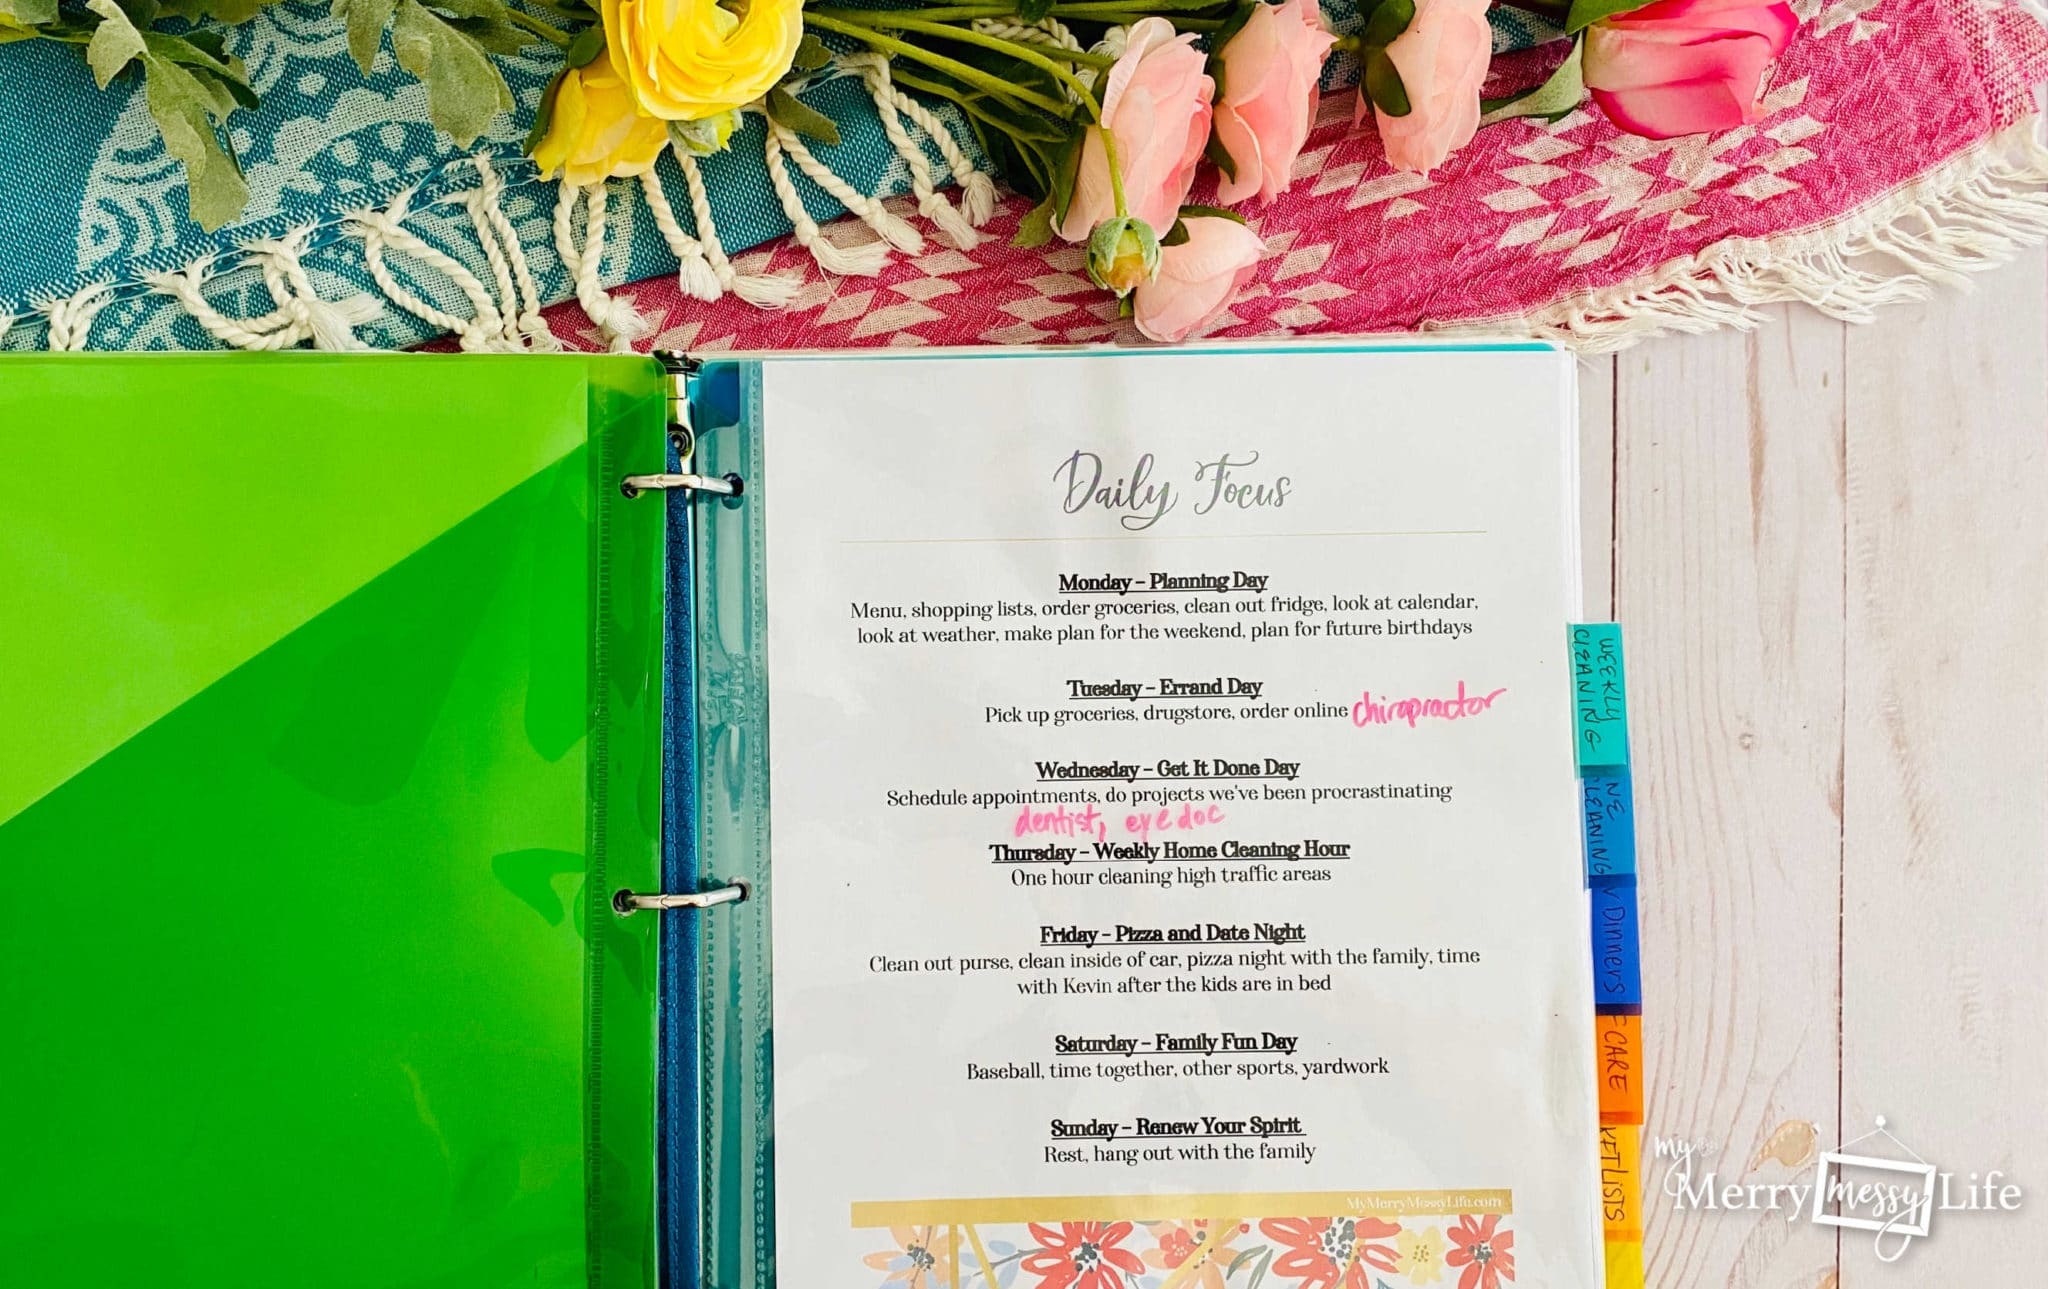 Daily Focus
Monday – Planning Day
Menu, shopping lists, order groceries, clean out fridge, look at calendar,
look at weather, make plan for the weekend, plan for future birthdays
Tuesday – Errand Day
Pick up groceries, drugstore, order online chiropractor
Wednesday – Get It Done Day
Schedule appointments, do projects we've been procrastinating
dentist, eye doc
Thursday – Weekly Home Cleaning Hour
One hour cleaning high traffic areas
Friday – Pizza and Date Night
Clean out purse, clean inside of car, pizza night with the family, time
with Kevin after the kids are in bed
Saturday – Family Fun Day
Baseball, time together, other sports, yardwork
Sunday – Renew Your Spirit
Rest, hang out with the family
MyMerryMessyLife.com
WEEKLY
CLEANING
CLEANING
Dinners
CARE
my
Merry messy Life